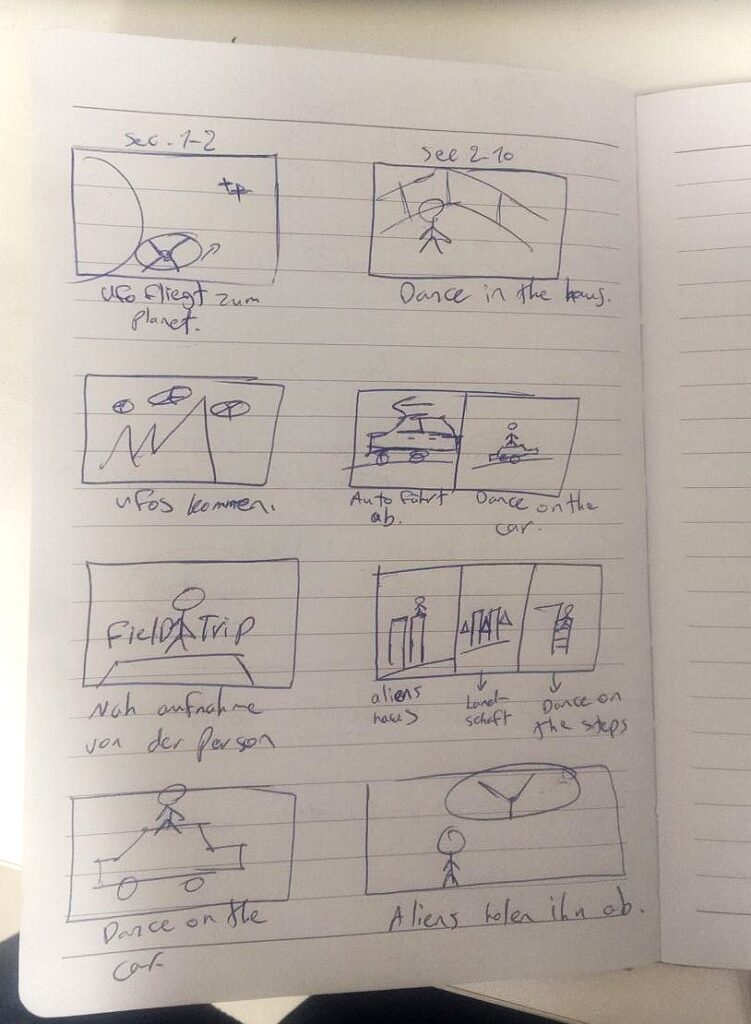 sec. 1-2
ufo fliegt zum
planet.
sec 2-10
Dance in the haus.
ufos kommen.
Auto fährt
ab.
Dance on the
car.
FielD Trip
Nah aufnahme
von der Person
aliens
haus
Land-
schaft
Dance on
the steps
Dance on the
car.
Aliens holen ihn ab.